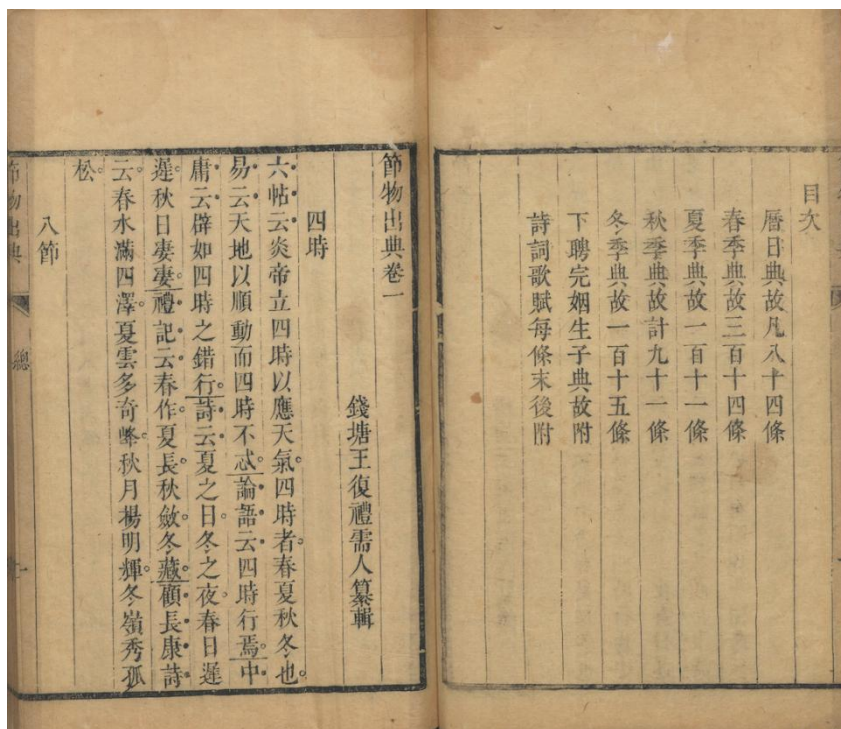 目次
曆日典故凡八十四條
春季典故三百十四條
夏季典故一百十一條
秋季典故計九十一條
冬季典故一百十五條
下聘完姻生子典故附
詩詞歌賦每條末後附
節物出典卷一
錢塘王復禮需人纂輯
四時
六帖云炎帝立四時以應天氣四時者春夏秋冬也
易云天地以順動而四時不忒論語云四時行焉中
庸云辟如四時之錯行詩云夏之日冬之夜春日遲
遲秋日淒淒禮記云春作夏長秋斂冬藏顧長康詩
云春水滿四澤夏雲多奇峰秋月揚明輝冬嶺秀孤
松
八節
節物出典
總
一